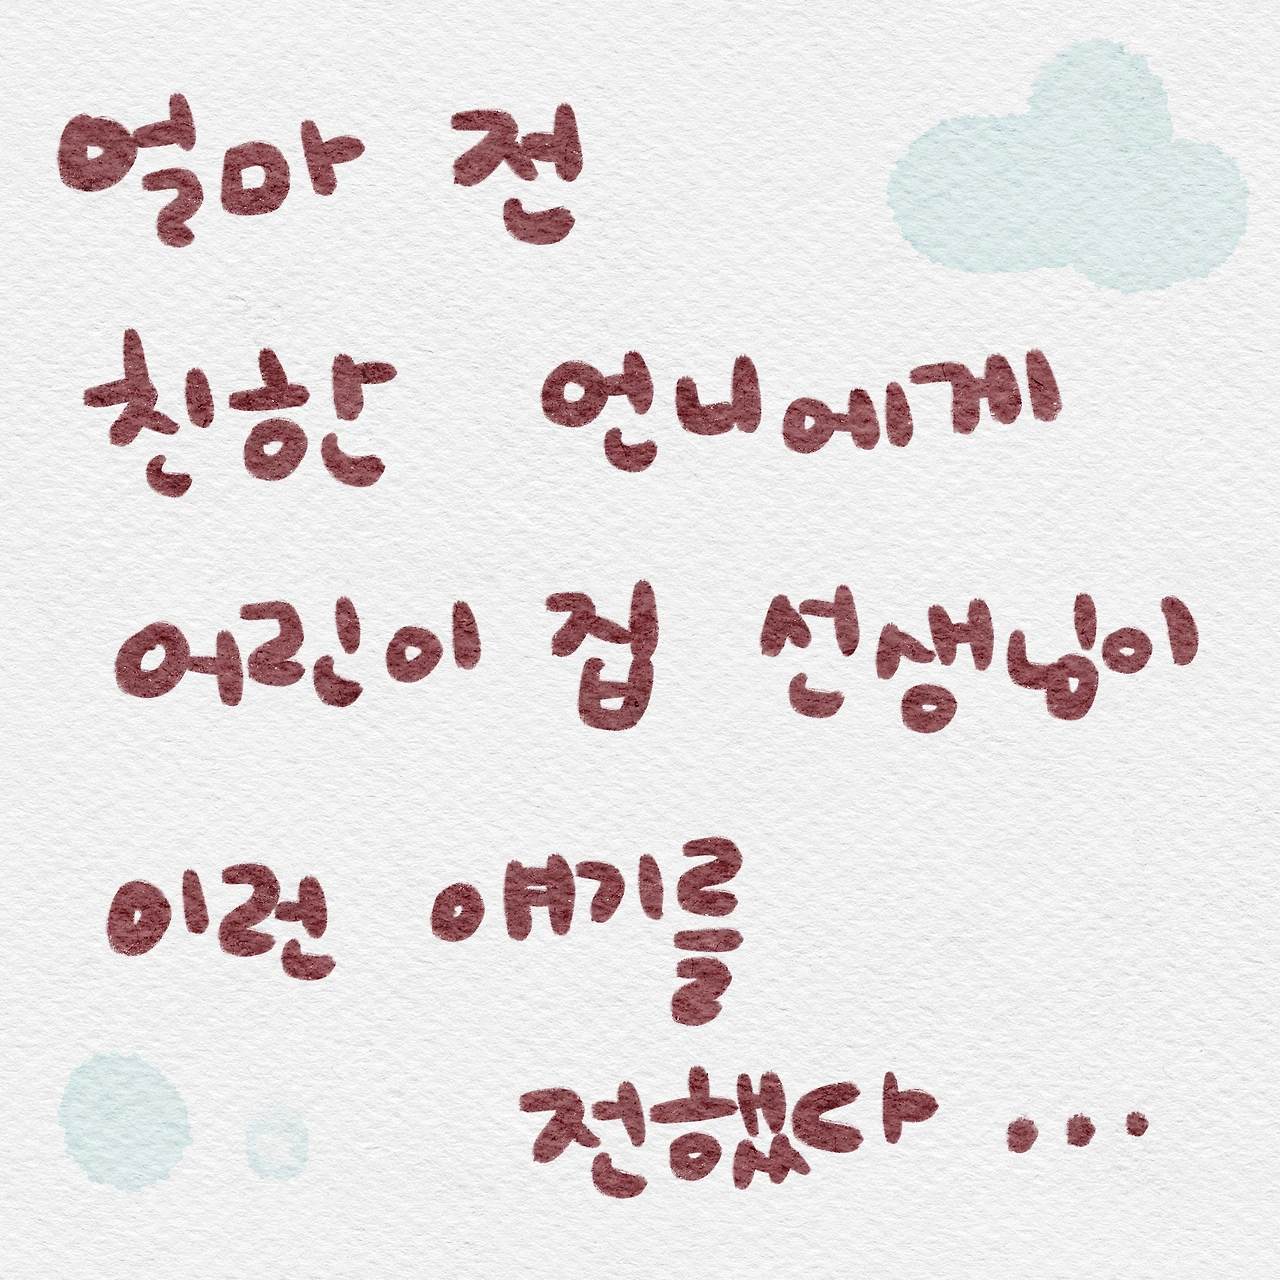 얼마 전
친한 언니에게
어린이 집 선생님이
이런 얘기를
전했다 ...